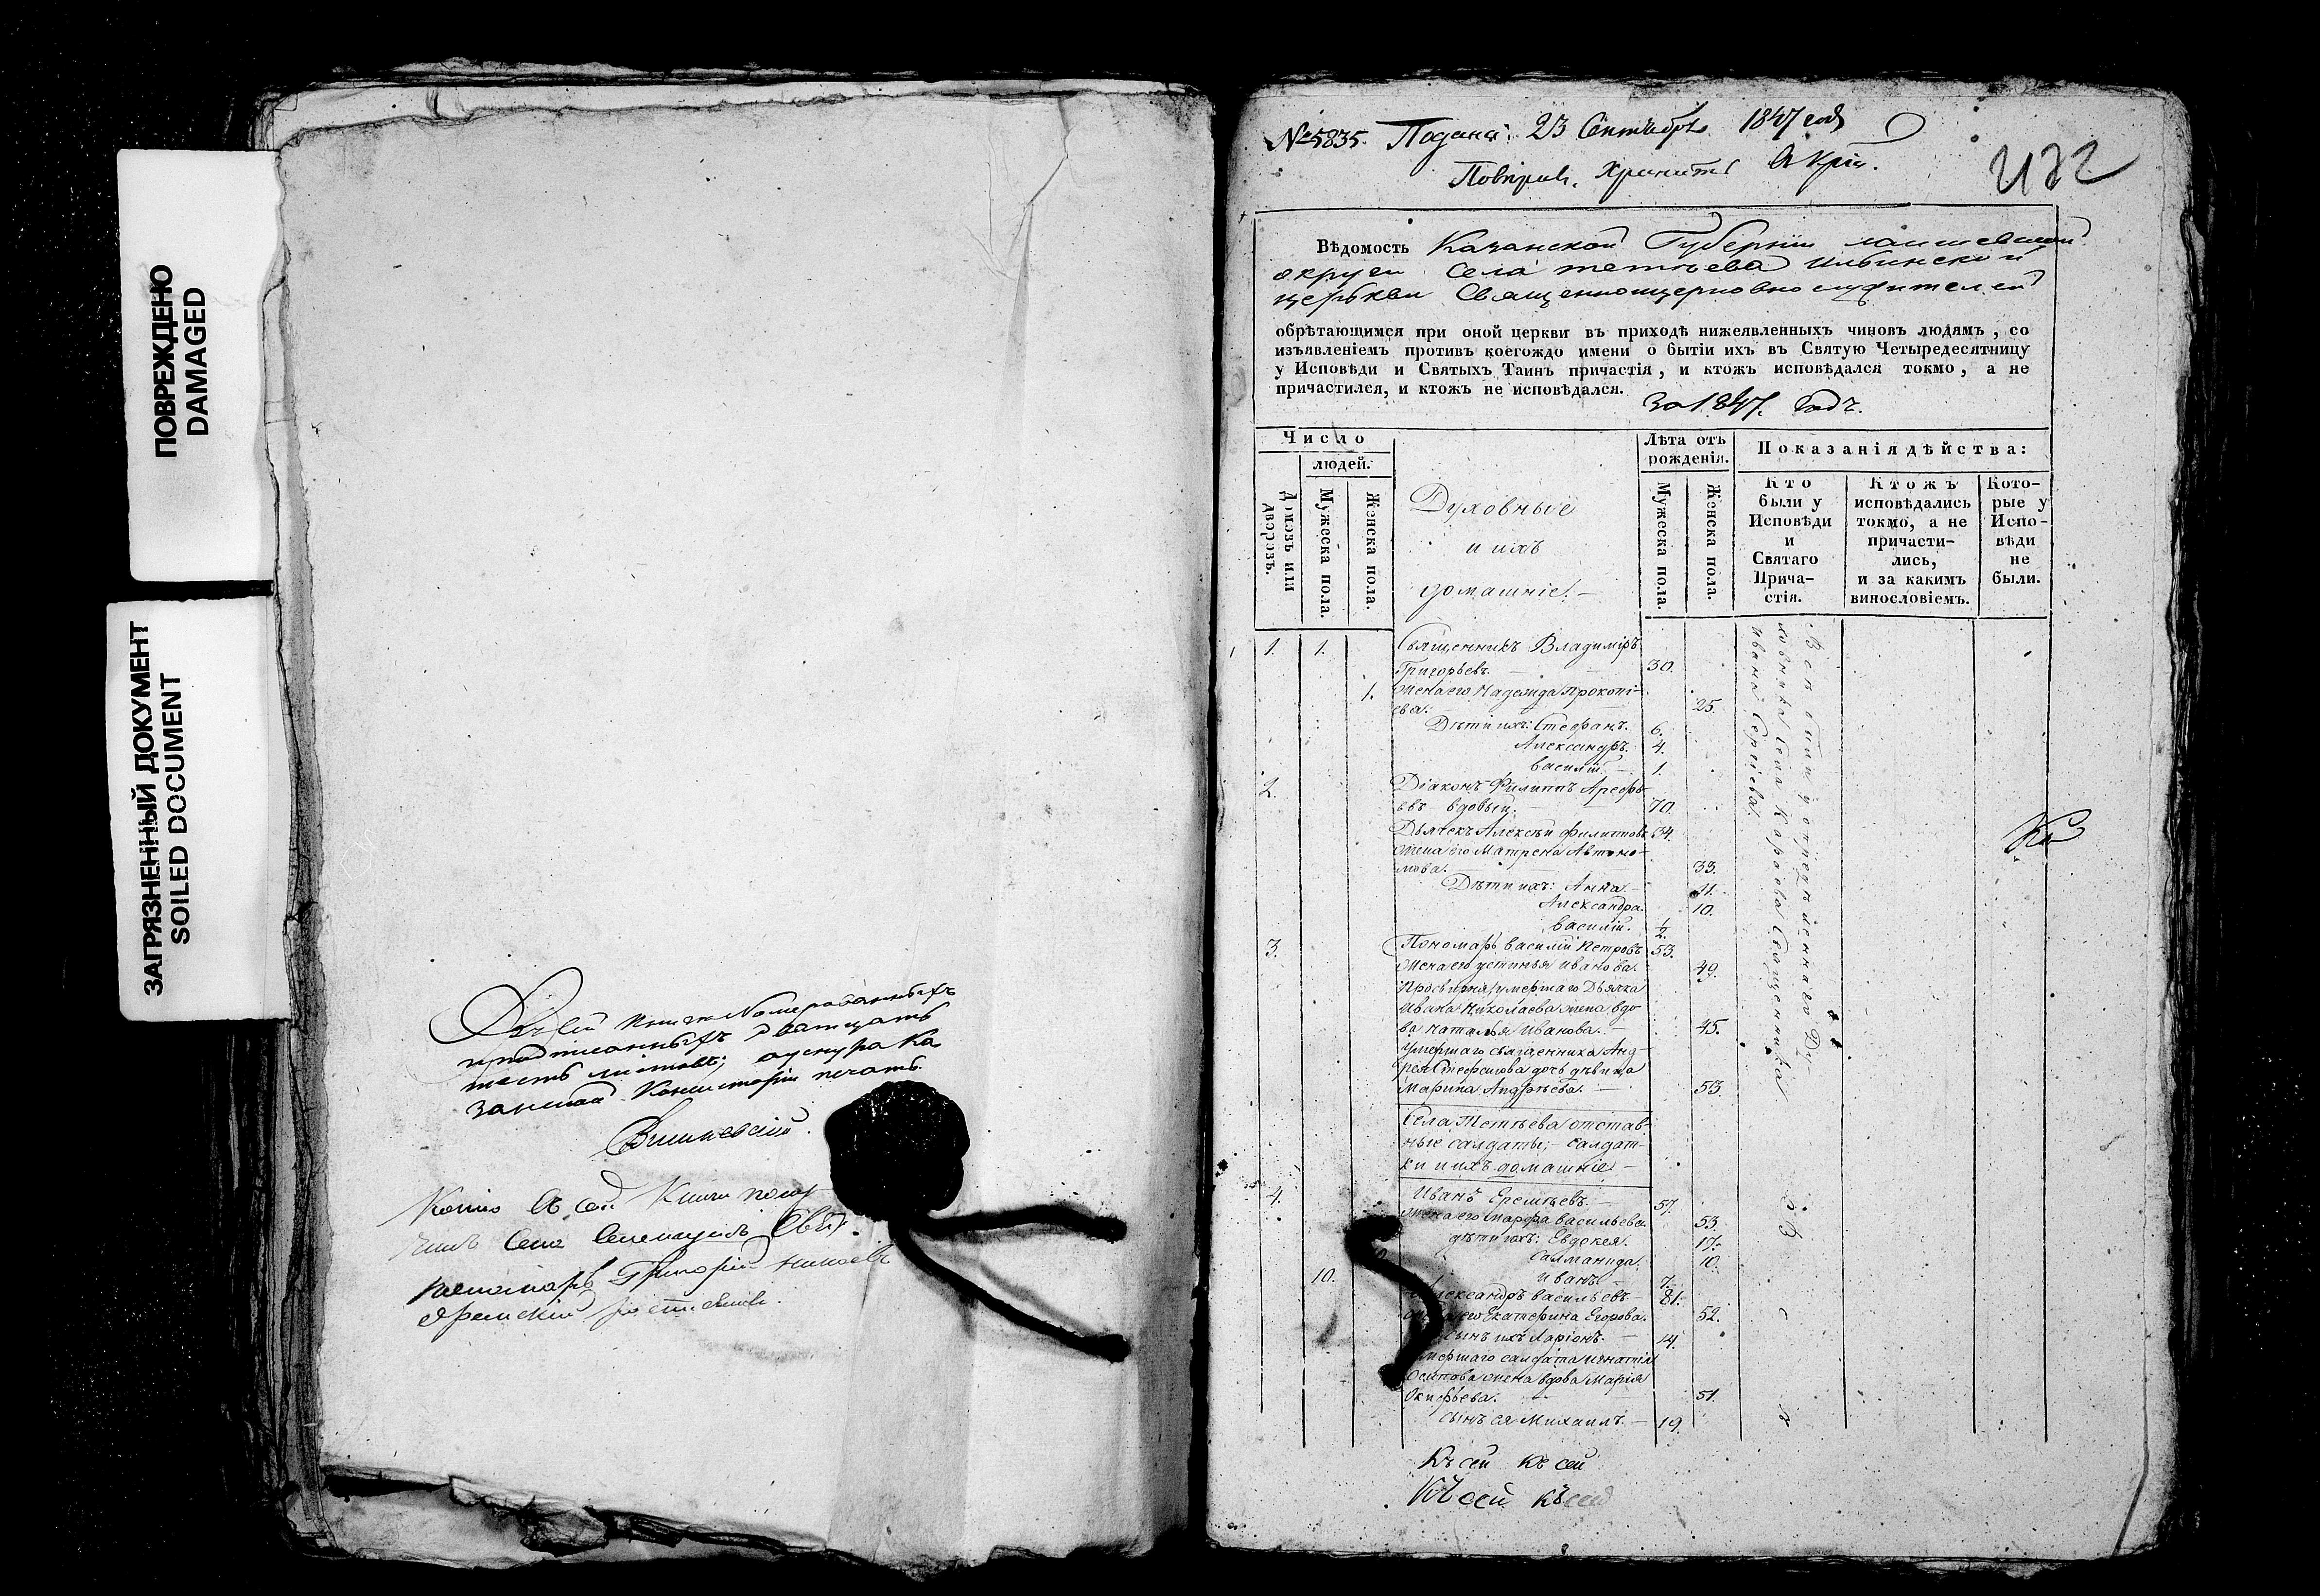 ПОВРЕЖДЕНО
DAMAGED
ЗАГРЯЗНЕННЫЙ ДОКУМЕНТ
SOILED DOCUMENT
Въ сей книге Номерованныхъ
дватцать
шесть листовъ;
занской Консисторіи печать.
Вишневский.
Копию съ сей Книги
Села
пономарь Григорій
№ 5835. Подана 23 Сентября 1847 года
Повѣрив. Хранить
Вѣдомость Казанской Губерніи лаишевской
округи Села тетѣева Ильинской
церкви Священноцерковнослужителей
обрѣтающимся при оной церкви въ приходѣ нижеявленныхъ чиновъ людямъ, со
изъявленіемъ противъ коегождо имени о бытіи ихъ въ Святую Четыредесятницу
у Исповѣди и Святыхъ Таинъ причастія, и ктожъ исповѣдался токмо, а не
причастился, и ктожъ не исповѣдался.
За 1847. годъ.
Число
людей.
Домовъ или дворовъ.
Мужеска пола.
Женска пола.
Духовные
и ихъ
домашніе.
Лѣта отъ
рожденія.
Мужеска пола.
Женска пола.
Показанія дѣйства:
Кто
были у
Исповѣди
и
Святаго
Прича-
стія.
Ктожъ
исповѣдались
токмо, а не
причасти-
лись,
и за какимъ
винословіемъ.
Кото-
рые у
Испо-
вѣди
не
были.
1. 1. Священникъ Владиміръ
Григорьевъ. 30.
1. Жена его Надежда Прокопі-
ева. 25.
Дѣти ихъ: Стефанъ. 6.
Александръ. 4.
Василій. 1.
2. Діаконъ Филиппъ Арефь-
евъ вдовый. 70.
Дьячекъ Алексѣй Филиповъ 34.
Жена его Матрена Автоно-
мова. 33.
Дѣти ихъ: Анна. 11.
Александра. 10.
Василій. ½
3. Пономарь Василій Петровъ 53.
Жена его Устинья Иванова. 49.
умершаго Дьячка
Ивана Николаева жена вдо
ва Наталья Иванова. 45.
Умершаго священника Анд-
рея Стефанова дочь дѣвица
Марина Андрѣева. 53.
Все были у определеннаго Ду-
ховника Села Карасева Священника
Ивана Сергіева.
Села Тетѣева отстав-
ные салдаты, салдат-
ки и ихъ домашніе
4. Иванъ Еремѣевъ. 57.
Жена его Марфа Васильева. 53.
Дѣти ихъ: Евдокея. 17.
10.
10. Иванъ 7.
Александръ Васильевъ. 61.
его Екатерина Егорова. 52.
сынъ ихъ Ларіонъ. 14.
умершаго салдата Игнатія
Осипова жена вдова Марія
51.
сынъ ея Михаилъ. 19.
Къ сей къ сей
Къ сей къ сей